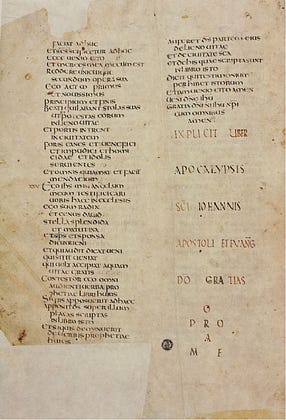 faciat adhuc
et scs scificetur adhuc
ecce uenio cito
et merces mea mecum est
reddere unicuique
secundum opera sua
ego et primus
et nouissimus
principium et finis
beati qui lauant stolas suas
ut potestas eorum
in ligno uitae
et portis intrent
in ciuitatem
foris canes et uenefici
et inpudici et homi
cidae et idolis
seruientes
et omnis qui amat et facit
mendacium
ego ihs misi angelum
meum testificari
uobis haec in ecclesiis
ego sum radix
et genus dauid
stella splendida
et matutina
et sps et sponsa
dicunt ueni
et qui audit dicat ueni
qui sitit ueniat
qui uult accipiat aquam
uitae gratis
contestor ego omni
audienti uerba pro
phetiae libri huius
si quis apposuerit ad haec
super illum
plagas scriptas
in libro isto
et si quis diminuerit
de uerbis prophetiae
huius
auferet ds partem eius
de ligno uitae
et de ciuitate sca
et de his quae scripta sunt
in libro isto
dicit qui testimonium
perhibet istorum
etiam uenio cito amen
ueni dne ihu
gratia dni nihu xpi
cum omnibus
amen
EXPLICIT LIBER
APOCALYPSIS
SCI IOHANNIS
APOSTOLI ET EUANG
DO GRATIAS
O
P R O
A E
M